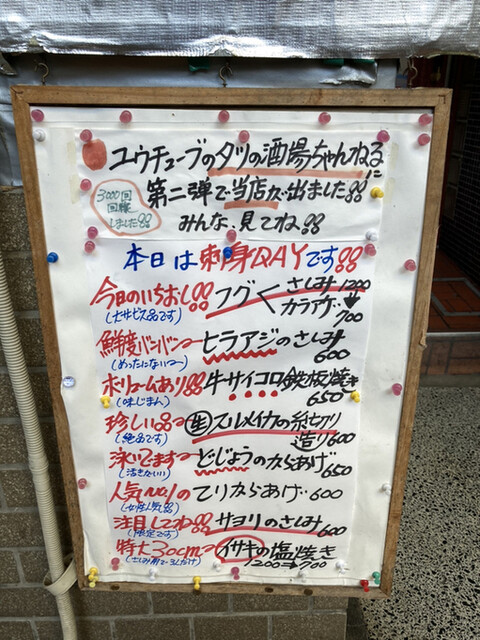 ユウチューブのタツの酒場ちゃんねるに
第二弾で当店が出ました!!
3000回
回転
しました!!
みんな、見てね!!
本日は刺身DAYです!!
今日のいちおし!!フグくさしみ1200
(大サービス品です)カラアゲ・700
鮮度バーバー ヒラアジのさしみ
(めったにない〜) 600
ボリュームあり!!牛サイコロ鉄板焼き
(味じまん) 650
珍しい品〜(生)スルメイカの糸切り
(絶品です) 造り600
泳いでます〜どじょうのからあげ・650
(活きがいい)
人気No.1のとりからあげ・600
(女性人気!!)
注目してね!!サヨリのさしみ
(限定です) 600
特大30cm〜イサキの塩焼き
1200→700